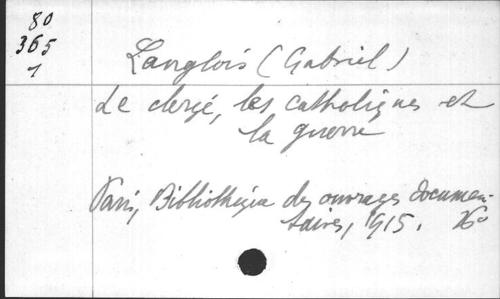 80
365
1
Langlois (Gabriel)
Le clergé, les catholiques et
la guerre
Paris, Bibliothèque des ouvrages documen-
taires, 1915. 16°